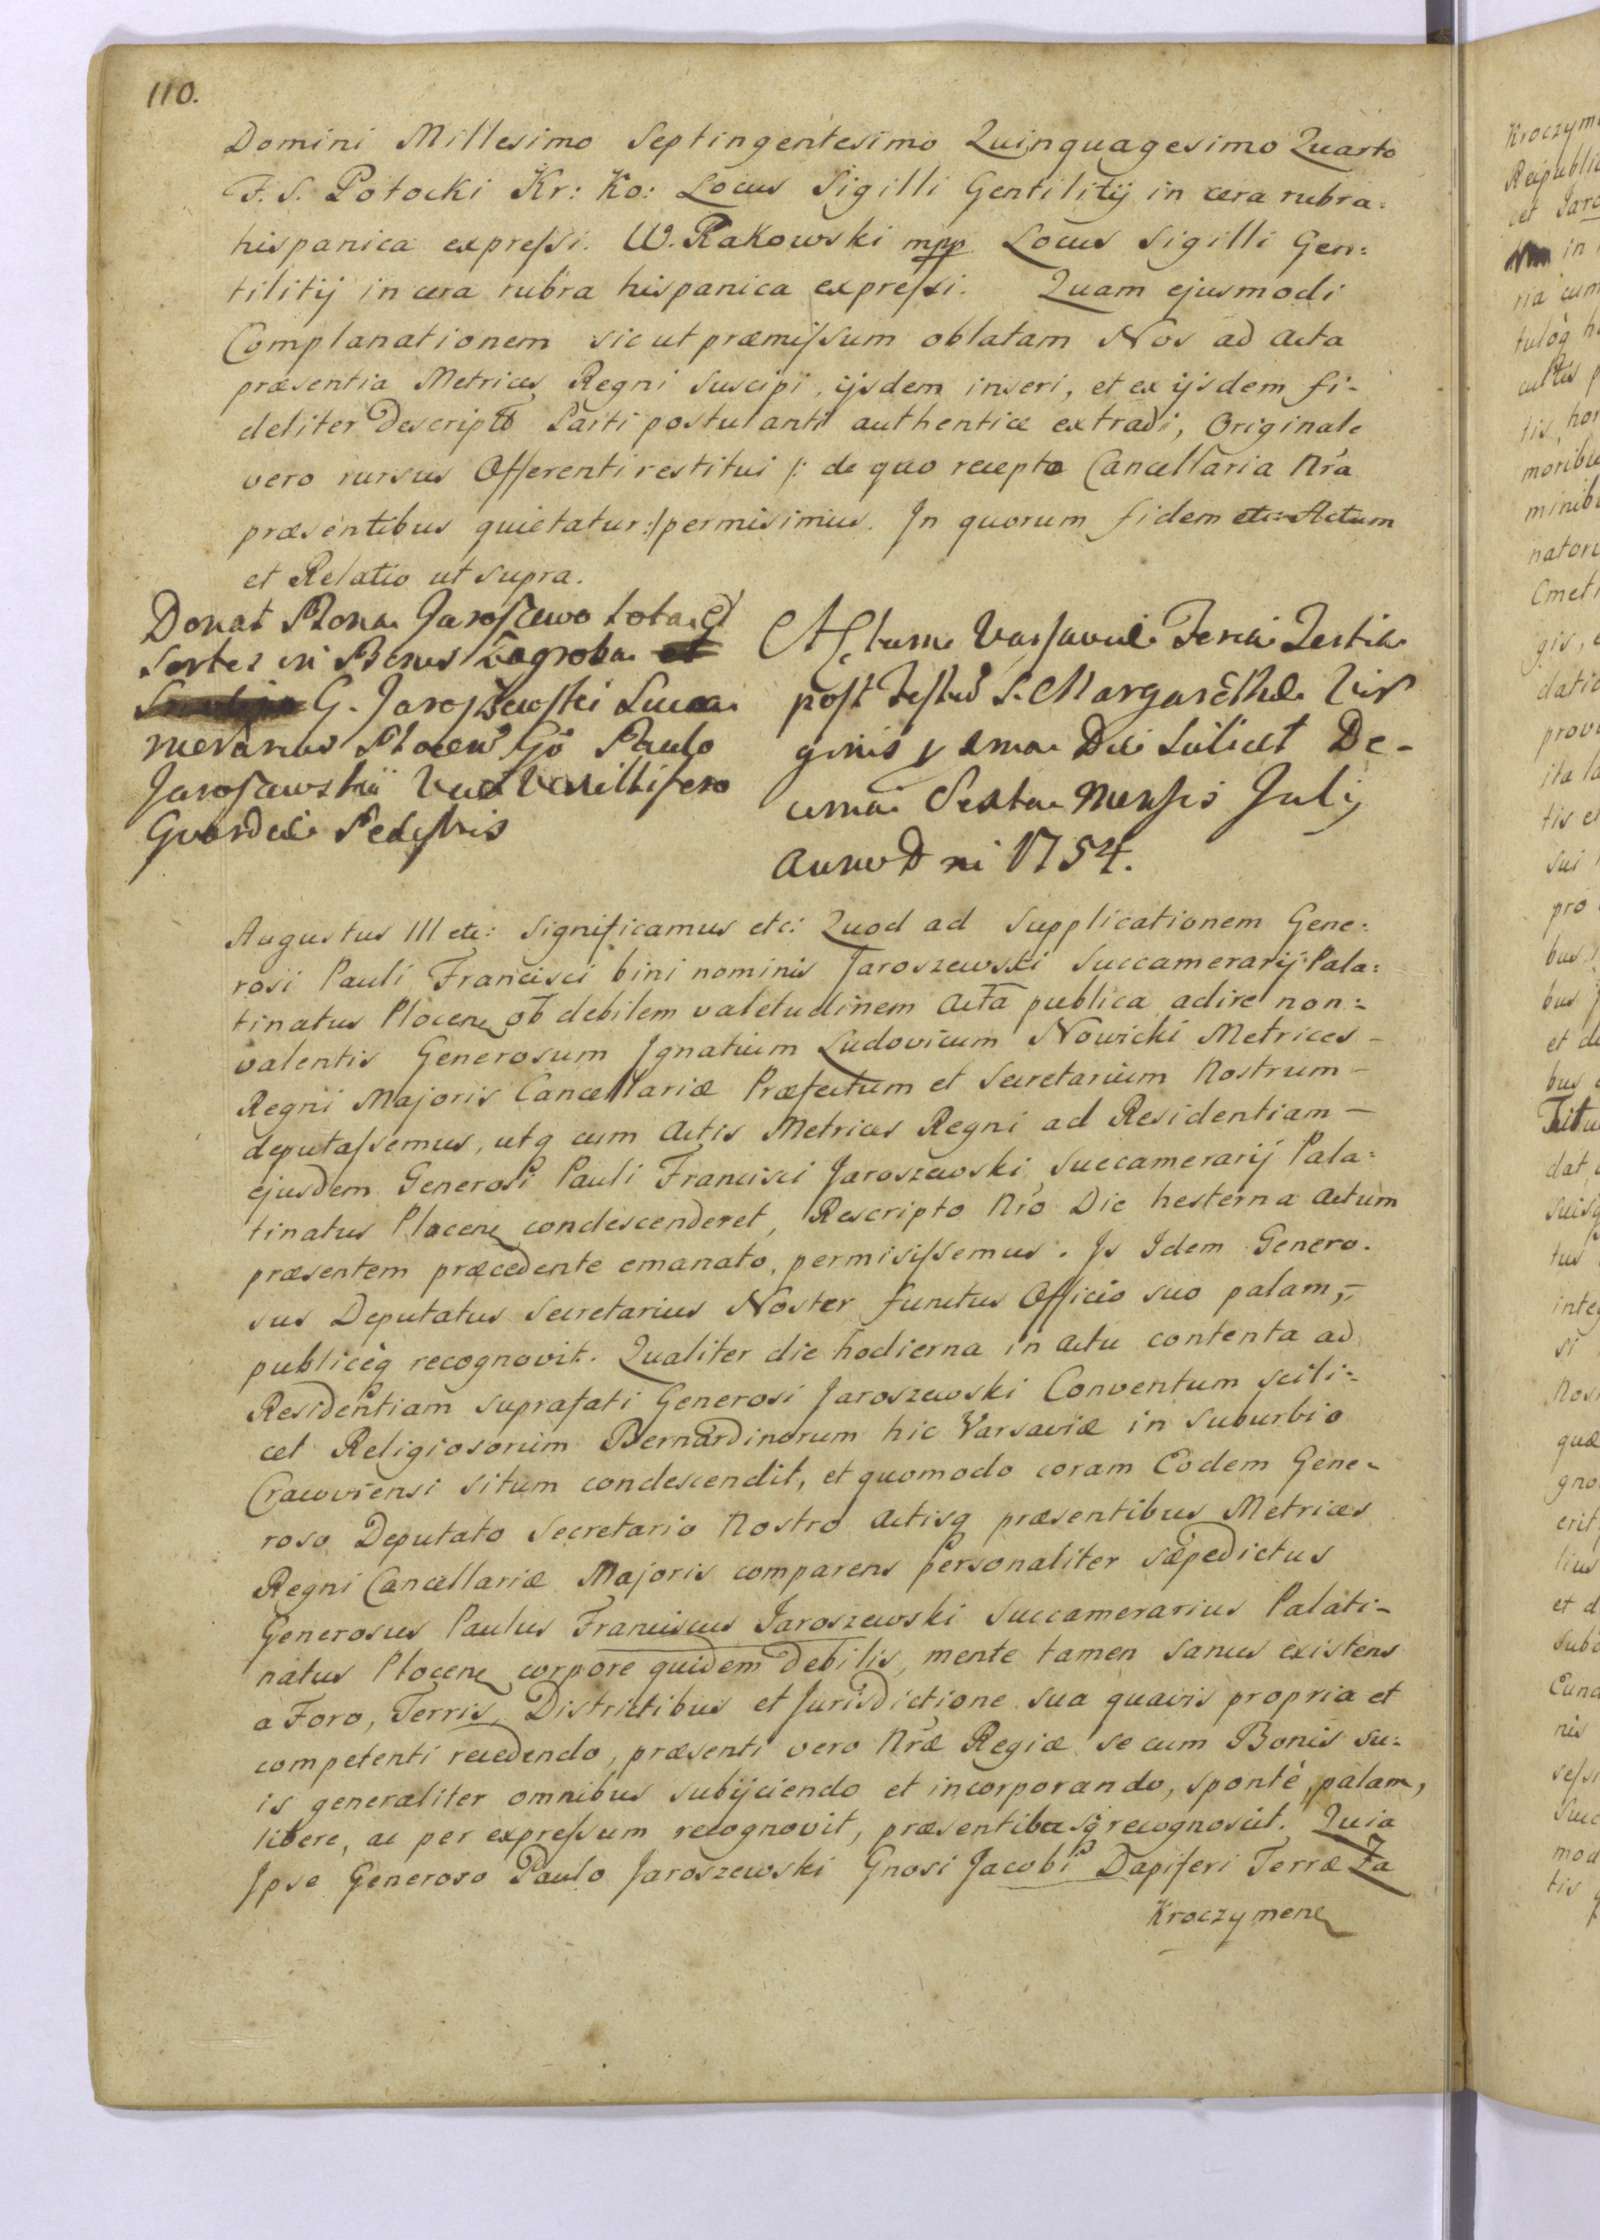 110.
Domini Millesimo Septingentesimo Quinquagesimo Quarto
F. S. Potocki Kr: Ko: Locus Sigilli Gentilitij in cera rubra:
hispanica expressi. W. Rakowski mpp Locus Sigilli Gen:
tilitij in cera rubra hispanica expressi. Quam ejusmodi
Complanationem sic ut præmissum oblatam Nos ad Acta
præsentia Metrices Regni suscipi, ijsdem inseri, et ex ijsdem fi-
deliter Descriptã Parti postulanti authentice extradi, Originale
vero rursus Offerenti restitui /: de quo recepto Cancellaria Nra
præsentibus quietatur :/ permisimus. In quorum fidem etc Actum
et Relatio ut supra.
Donat Bona Jaroszewo tota et
Sortes in Bonis Zagroba et
G. Jaroszewski Succa
merarius Plocen Gõ Paulo
Jaroszewski Vexillifero
Gvardiæ Pedestris
Actum Varsaviæ Feria Tertia
post Festũ S. Margarethæ Vir
ginis Die Scilicet De-
cima Sexta Mensis Julij
Anno Dni 1754.
Augustus III etc: Significamus etc: Quod ad Supplicationem Gene:
rosi Pauli Francisci bini nominis Jaroszewski Succamerarij Pala:
tinatus Plocen ob debilem valetudinem Acta publica adire non:
valentis Generosum Ignatium Ludovicum Nowicki Metrices -
Regni Majoris Cancellariæ Præfectum et Secretarium Nostrum -
deputassemus, utq cum Actis Metrices Regni ad Residentiam -
ejusdem Generosi Pauli Francisci Jaroszewski Succamerarij Pala:
tinatus Plocen condescenderet, Rescripto Nro Die hesterna Actum
præsentem præcedente emanato, permisissemus. Is Idem Genero.
sus Deputatus Secretarius Noster functus Officio suo palam,-
publiceq recognovit. Qualiter die hodierna in Actu contenta ad
Residentiam suprafati Generosi Jaroszewski Conventum scili:
cet Religiosorum Bernardinorum hic Varsaviæ in Suburbio
Cracoviensi situm condescendit, et quomodo coram Eodem Gene-
roso Deputato Secretario Nostro Actisq præsentibus Metrices
Regni Cancellariæ Majoris comparens Personaliter sæpedictus
Generosus Paulus Franciscus Jaroszewski Succamerarius Palati-
natus Plocen corpore quidem Debilis, mente tamen sanus existens
a Foro, Terris, Districtibus et Jurisdictione sua quavis propria et
competenti recedendo, præsenti vero Nræ Regiæ se cum Bonis su:
is generaliter omnibus subijciendo et incorporando, sponté, palam,
libere, ac per expressum recognovit, præsentibusq recognoscit. Quia
Ipse Generoso Paulo Jaroszewski Gnosi Jacobi Dapiferi Terræ Za
Kroczymen